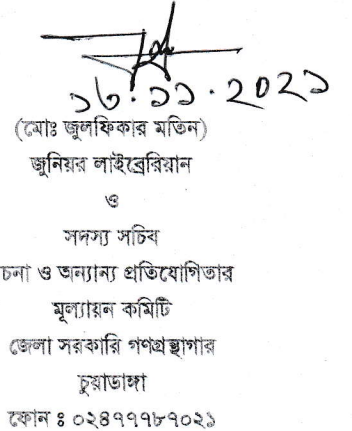 ১৬.১১.২০২১
(মোঃ জুলফিকার মতিন)
জুনিয়র লাইব্রেরিয়ান
ও
সদস্য সচিব
চনা ও অন্যান্য প্রতিযোগিতার
মূল্যায়ন কমিটি
জেলা সরকারি গণগ্রন্থাগার
চুয়াডাঙ্গা
ফোন ঃ ০২৪৭৭৭৮৭০২১